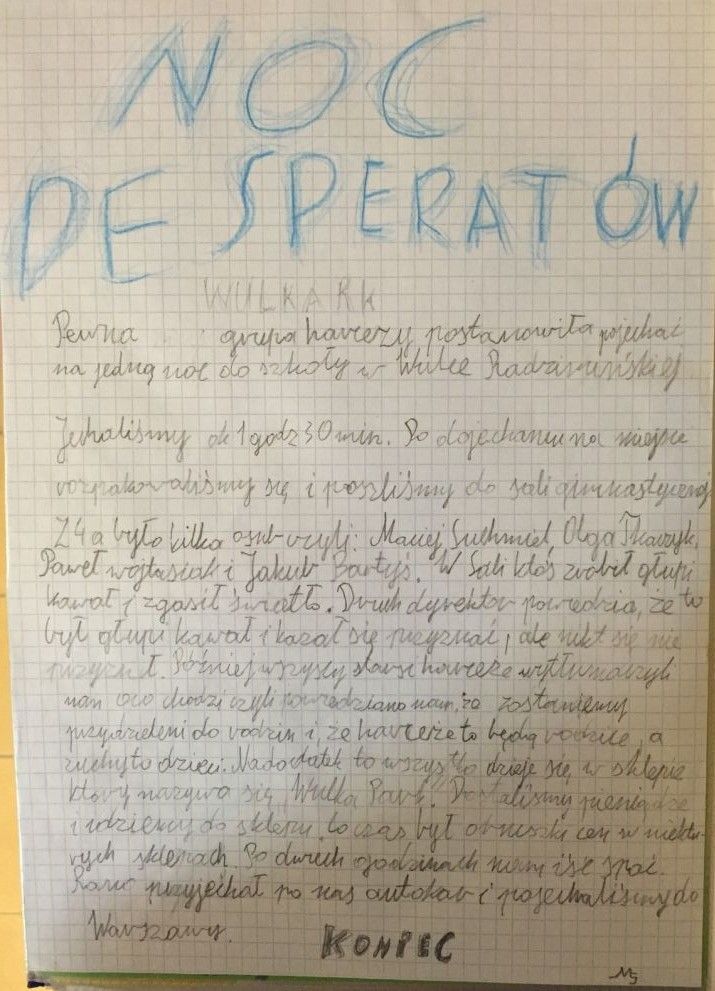 NOC
DESPERATÓW
WULKA RK
Pewna grupa harcerzy postanowiła pojechać
na jedną noc do szkoły w Wulce Radzimińskiej
Jechaliśmy ok 1 godz 30 min. Po dojechaniu na miejsce
rozpakowaliśmy się i poszliśmy do sali gimnastycznej
Z 4a było kilka osub czyli: Maciej Olga Tkaczyk,
Paweł wojtasiak i Jakub Bartyś. W Sali ktoś zrobił głupi
kawał i zgasił światło. Druch dyrektor powiedzia, że to
był głupi kawał i kazał się przyznać, ale nikt się nie
przyznał. Później wszyscy starsi harceże wytłumaczyli
nam oco chodzi czyli powiedziano nam, że zostaniemy
przydzieleni do rodzin i, że harceże to będą rodzice, a
zuchy to dzieci. Nadodatek to wszystko dzieje się w sklepie
ktury nazywa się "Wulka Park". Dostaliśmy pieniądze
i idziemy do sklepu, to czas był obniszki cen w niektu-
rych sklepach. Po dwuch godzinach nam iść spać.
Rano przyjechał po nas autokar i pojechaliśmy do
Warszawy.
KONIEC